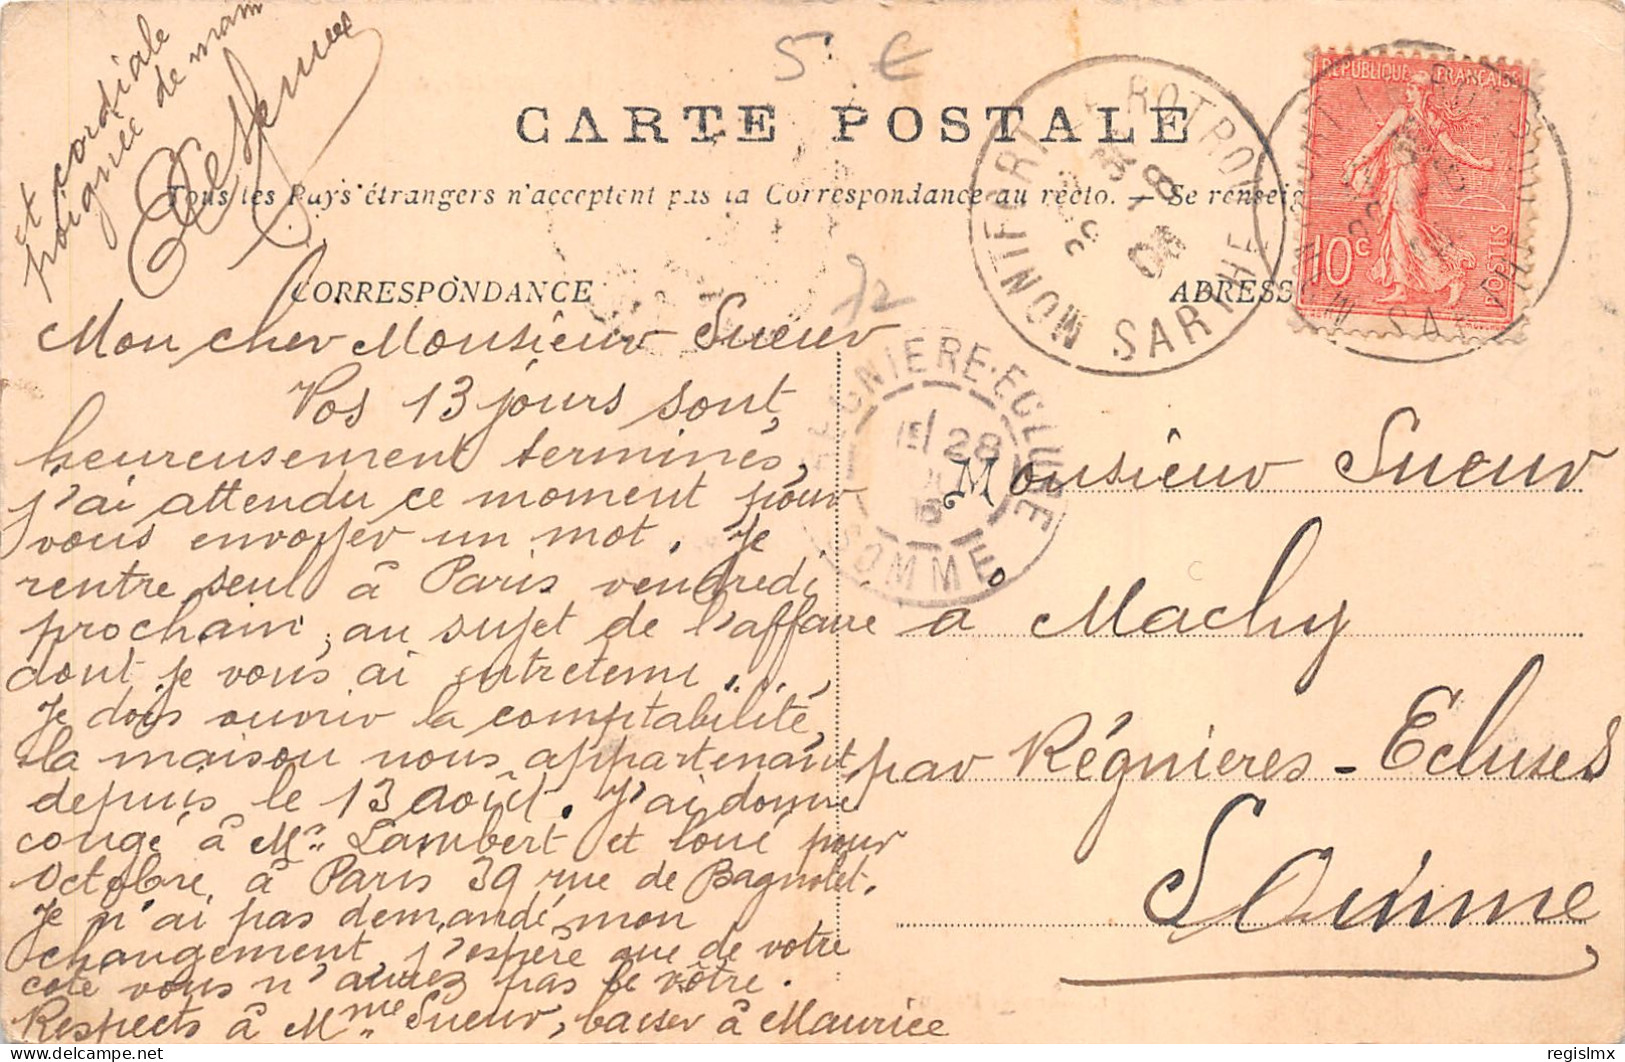 5 €
CARTE POSTALE
Tous les Pays étrangers n'acceptent pas la Correspondance au recto. — Se renseig
CORRESPONDANCE
ADRESS
72
et cordiale
poignée de main
Mon cher Monsieur Sueur
Vos 13 jours sont
heureusement terminés,
j'ai attendu ce moment pour
vous envoyer un mot. Je
rentre seul à Paris vendredi
prochain, au sujet de l'affaire
dont je vous ai entretenu...
Je dois ouvrir la comptabilité,
la maison nous appartenant
depuis le 13 août. J'ai donné
congé à Mr Lambert et loué pour
Octobre à Paris 39 rue de Bagnolet.
Je n'ai pas demandé mon
changement, j'espère que de votre
coté vous n'aurez pas le vôtre.
Respects à Mme Sueur, baiser à Maurice
Monsieur Sueur
a Machy
par Régnieres-Ecluses
Somme
REPUBLIQUE FRANÇAISE
10c
POSTES
MONTFORT LE ROTROU
SARTHE
REGNIERE-ECLUSE
28
SOMME
regislmx